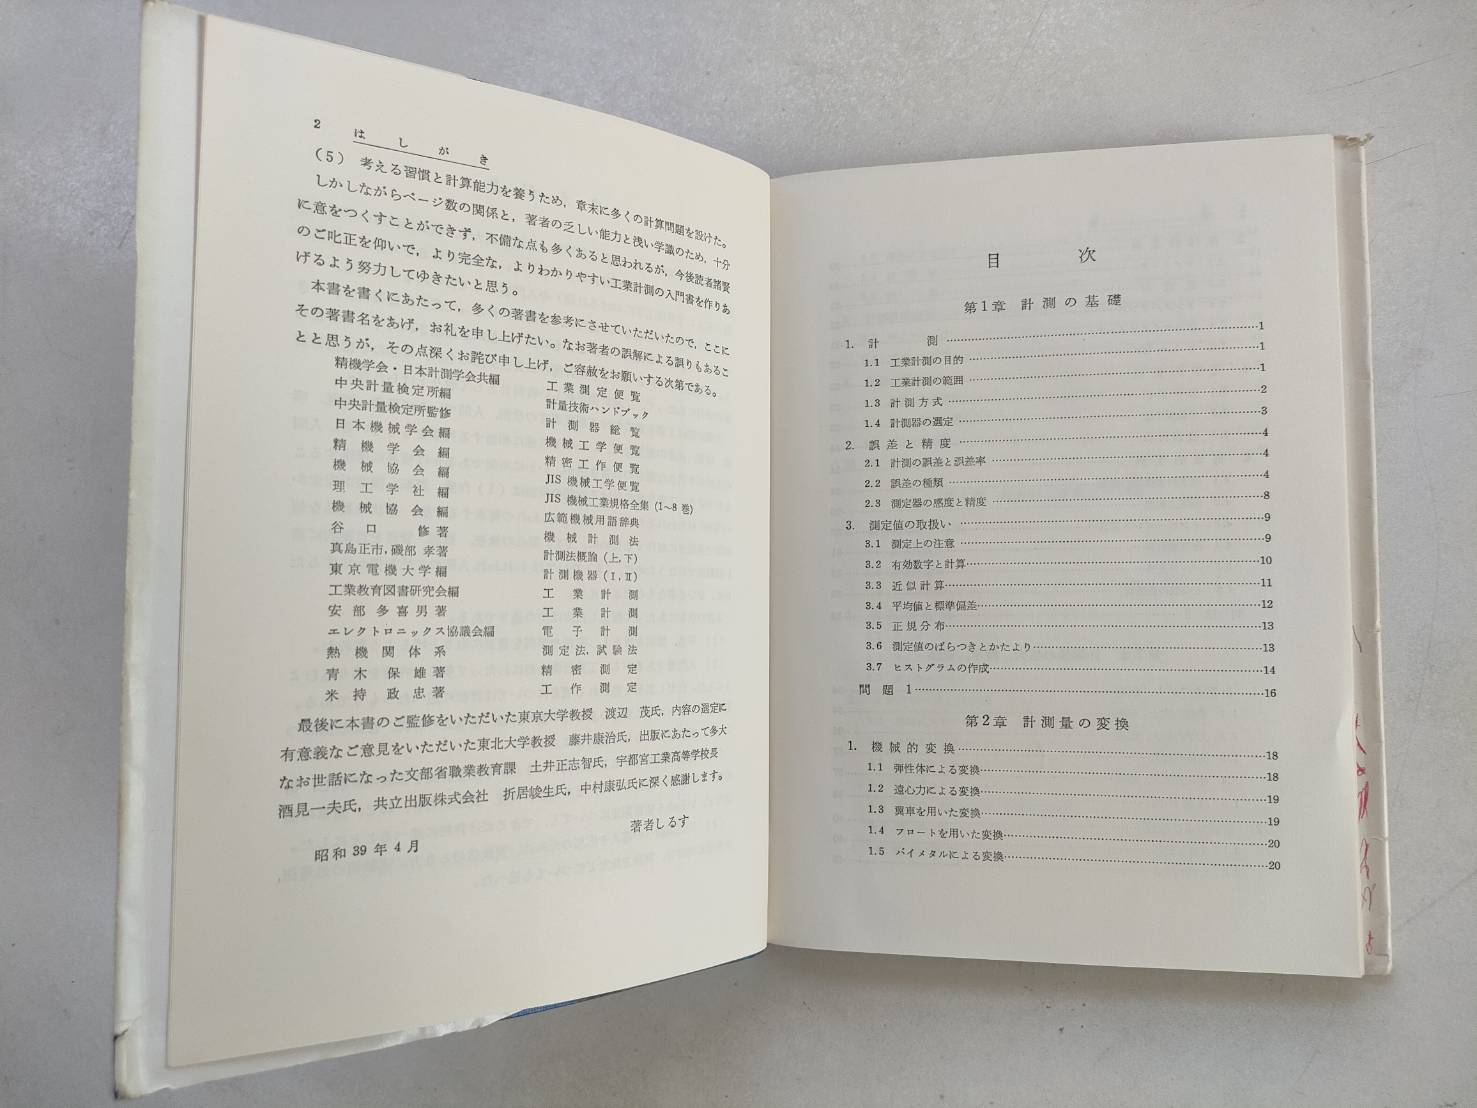 2 はしがき
(5) 考える習慣と計算能力を養うため，章末に多くの計算問題を設けた。
しかしながらページ数の関係と，著者の乏しい能力と浅い学識のため，十分
に意をつくすことができず，不備な点も多くあると思われるが，今後読者諸賢
のご叱正を仰いで，より完全な，よりわかりやすい工業計測の入門書を作りあ
げるよう努力してゆきたいと思う。
本書を書くにあたって，多くの著書を参考にさせていただいたので，ここに
その著書名をあげ，お礼を申し上げたい。なお著者の誤解による誤りもあるこ
とと思うが，その点深くお詫び申し上げ，ご容赦をお願いする次第である。
精機学会・日本計測学会共編 工業測定便覧
中央計量検定所編 計量技術ハンドブック
中央計量検定所監修 計測器総覧
日本機械学会編 機械工学便覧
精機学会編 精密工作便覧
機械協会編 JIS 機械工学便覧
理工学社編 JIS 機械工業規格全集 (1～8 巻)
機械協会編 広範機械用語辞典
谷口 修著 機械計測法
真島正市，磯部 孝著 計測法概論 (上，下)
東京電機大学編 計測機器 (I，II)
工業教育図書研究会編 工業計測
安部多喜男著 工業計測
エレクトロニックス協議会編 電子計測
熱機関体系 測定法，試験法
青木保雄著 精密測定
米持政忠著 工作測定
最後に本書のご監修をいただいた東京大学教授 渡辺 茂氏，内容の選定に
有意義なご意見をいただいた東北大学教授 藤井康治氏，出版にあたって多大
なお世話になった文部省職業教育課 土井正志智氏，宇都宮工業高等学校長
酒見一夫氏，共立出版株式会社 折居峻生氏，中村康弘氏に深く感謝します。
著者しるす
昭和 39 年 4 月
目 次
第1章 計測の基礎
1. 計 測 ……1
1.1 工業計測の目的 ……1
1.2 工業計測の範囲 ……1
1.3 計測方式 ……2
1.4 計測器の選定 ……3
2. 誤差と精度 ……4
2.1 計測の誤差と誤差率 ……4
2.2 誤差の種類 ……4
2.3 測定器の感度と精度 ……8
3. 測定値の取扱い ……9
3.1 測定上の注意 ……9
3.2 有効数字と計算 ……10
3.3 近似計算 ……11
3.4 平均値と標準偏差 ……12
3.5 正規分布 ……13
3.6 測定値のばらつきとかたより ……13
3.7 ヒストグラムの作成 ……14
問題 1 ……16
第2章 計測量の変換
1. 機械的変換 ……18
1.1 弾性体による変換 ……18
1.2 遠心力による変換 ……19
1.3 翼車を用いた変換 ……19
1.4 フロートを用いた変換 ……20
1.5 バイメタルによる変換 ……20